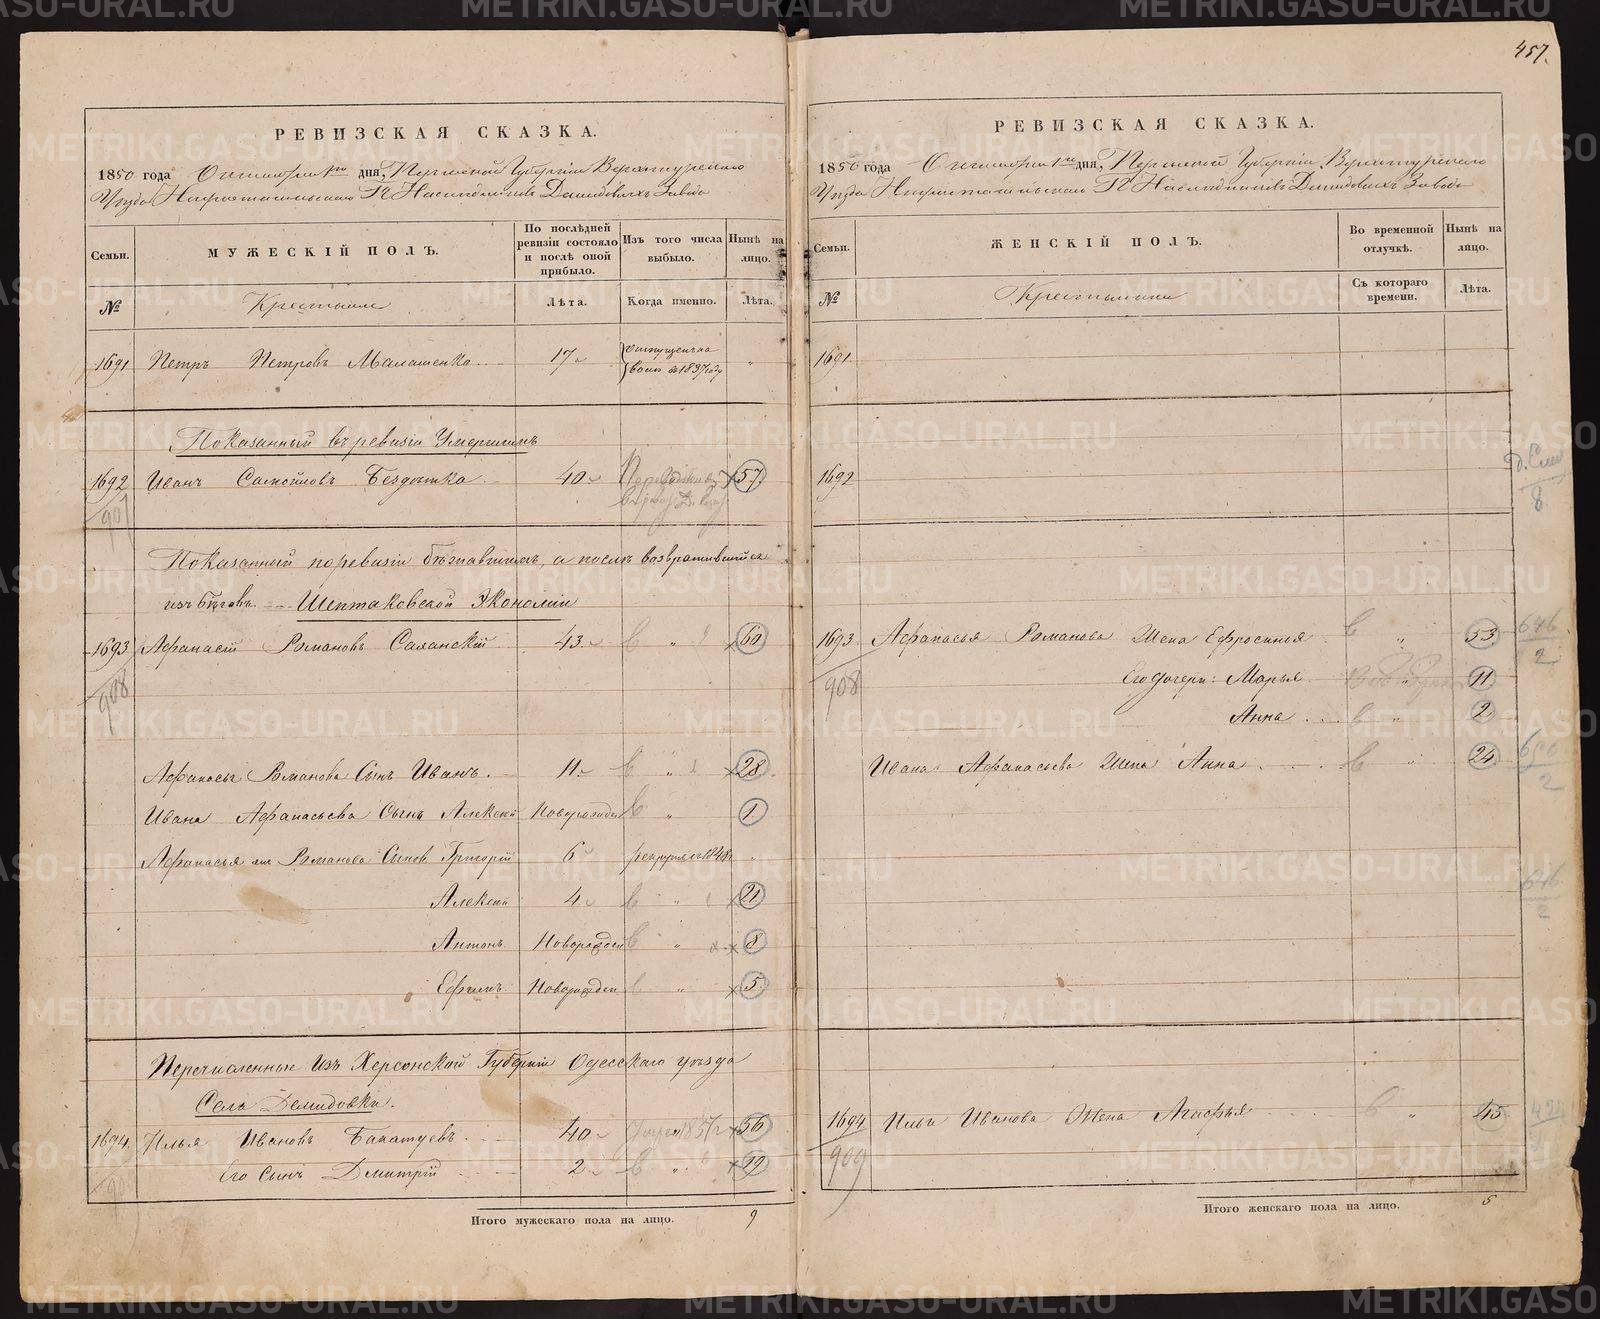 457.
РЕВИЗСКАЯ СКАЗКА.
1850 года Октября 1го дня, Пермской Губерніи Верхотурскаго
Уѣзда Нижнетагильскаго Гг. Наслѣдниковъ Демидовыхъ Завода
Семьи.
МУЖЕСКІЙ ПОЛЪ.
По послѣдней ревизіи состояло и послѣ оной прибыло.
Изъ того числа выбыло.
Нынѣ на лицо.
№
Крестьяне
Лѣта.
Когда именно.
Лѣта.
1691 Петръ Петровъ Малашенко 17 отпущенъ на волю въ 1837 году "
Показанный въ ревизіи Умершимъ
1692 Иванъ Самойловъ Бездотка 40 57
907
Показанный по ревизіи бѣжавшимъ, а послѣ возвратившійся
изъ бѣговъ. — Шептаковской Экономіи
1693 Афанасій Романовъ Саланскій 43 " 60
908
Афанасья Романова Сынъ Иванъ 11 " 28
Ивана Афанасьева Сынъ Алексѣй Новорожден " 1
Афанасья Романова Сынов Григорій 6 рекрут съ 1848 "
Алексѣй 4 " 21
Антонъ Новорожден " 8
Ефимъ Новорожден " 5
Перечисленные Изъ Херсонской Губерніи Одесскаго уѣзда
Села Демидовки.
1694 Илья Ивановъ Бакатуевъ 40 56
Его сынъ Дмитрій 2 " 19
Итого мужескаго пола на лицо. 9
РЕВИЗСКАЯ СКАЗКА.
1850 года Октября 1го дня, Пермской Губерніи, Верхотурскаго
Уѣзда Нижнетагильскаго Гг. Наслѣдниковъ Демидовыхъ Завода
Семьи.
ЖЕНСКІЙ ПОЛЪ.
Во временной отлучкѣ.
Нынѣ на лицо.
№
Крестьянки
Съ котораго времени.
Лѣта.
1691
1692
8
1693 Афанасья Романова Жена Ефросинья " 53 646
2
908 Его дочери: Марья " 11
Анна " 2
Ивана Афанасьева Жена Анна " 24 650
2
646
2
1694 Ильи Иванова Жена Агафья " 45
909
Итого женскаго пола на лицо. 5
METRIKI.GASO-URAL.RU